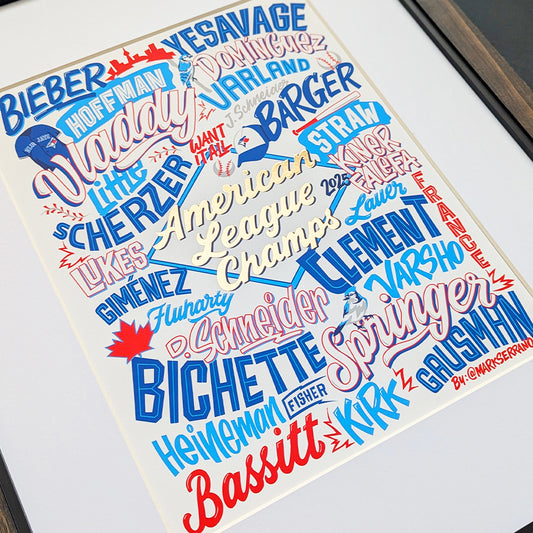 YESAVAGE
BIEBER
HOFFMAN
DOMINGUEZ
VARLAND
J. Schneider
BLUE JAYS
Vladdy
WANT
IT ALL
BARGER
Little
STRAW
SCHERZER
KINER
FALEFA
American
League
Champs
2025
Lauer
FRANCE
LUKES
GIMÉNEZ
CLEMENT
Fluharty
VARSHO
D. Schneider
Springer
BICHETTE
GAUSMAN
BY: @MARKSERRANO
Heineman
FISHER
KIRK
Bassitt